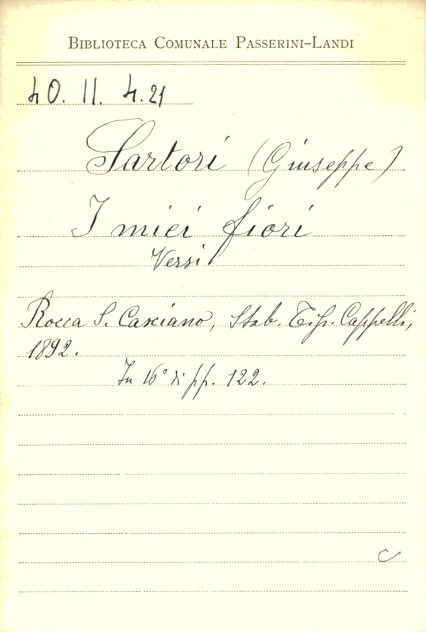 BIBLIOTECA COMUNALE PASSERINI-LANDI
40. II. 4. 21
Sartori (Giuseppe)
I miei fiori
Versi
Rocca S. Casciano, Stab. Tip. Cappelli,
1892.
In 16° di pp. 122.
C